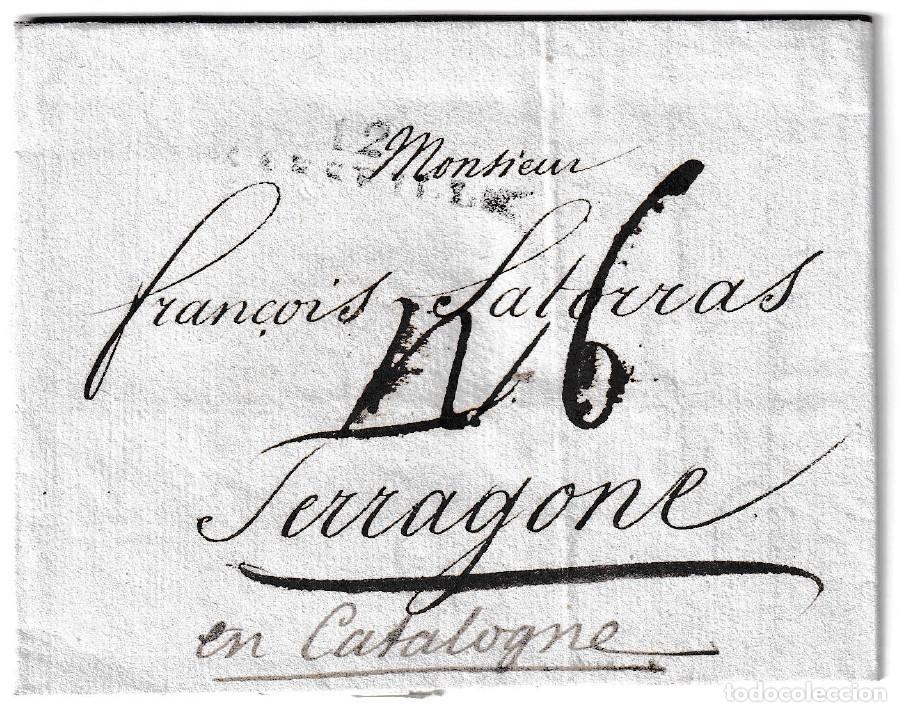 12
Monsieur
françois Satorras
R.6
Terragone
en Catalogne
todocoleccion